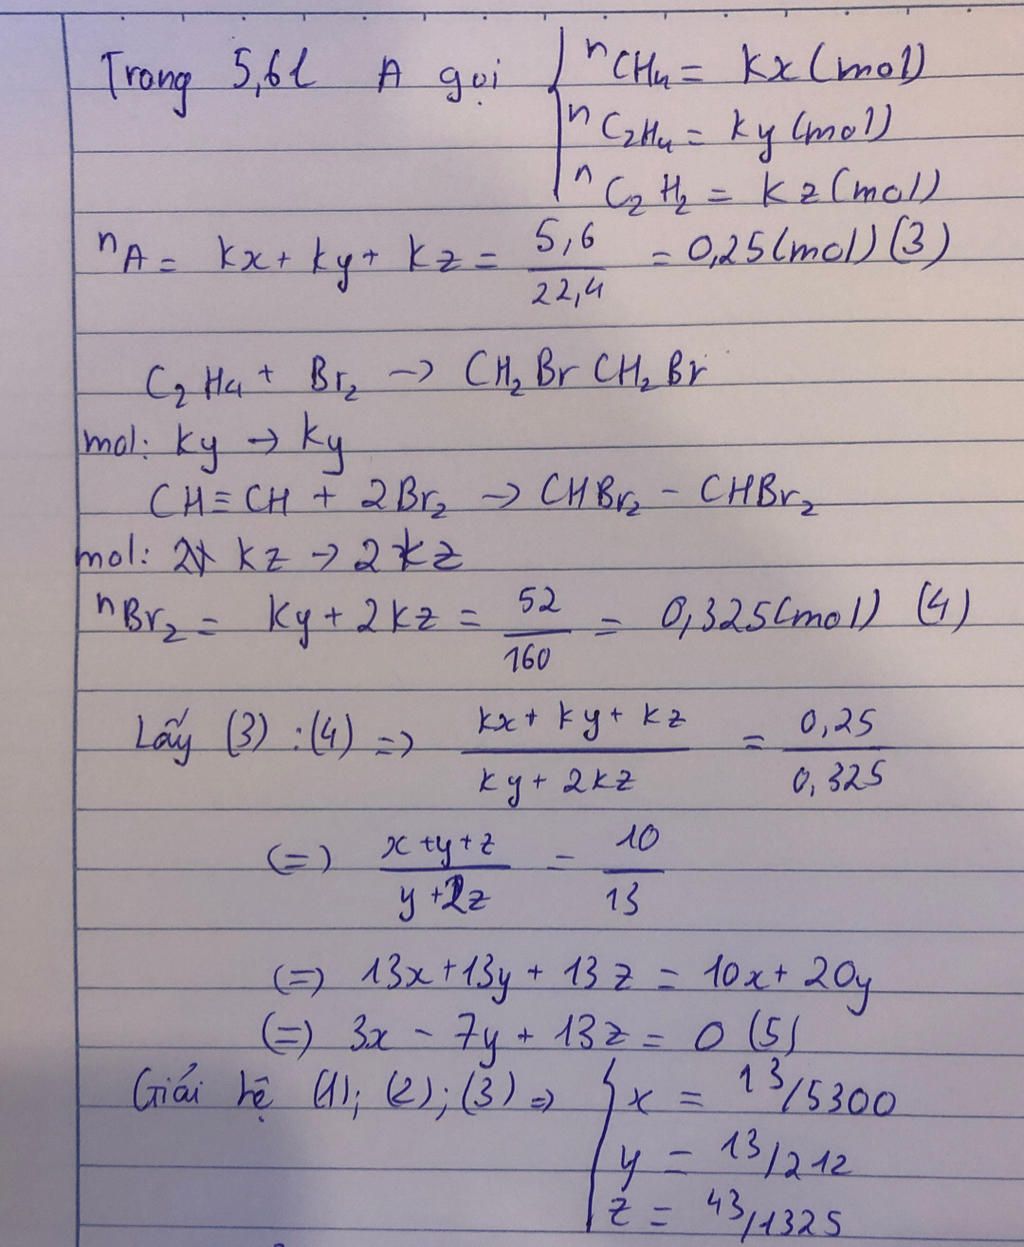 Trong 5,6l A gọi { nCH₄ = kx (mol)
nC₂H₄ = ky (mol)
nC₂H₂ = kz (mol)
nA = kx + ky + kz = 5,6/22,4 = 0,25 (mol) (3)
C₂H₄ + Br₂ → CH₂Br CH₂Br
mol: ky → ky
CH≡CH + 2Br₂ → CHBr₂ - CHBr₂
mol: kz → 2kz
nBr₂ = ky + 2kz = 52/160 = 0,325 (mol) (4)
Lấy (3) : (4) => (kx + ky + kz)/(ky + 2kz) = 0,25/0,325
(=) (x + y + z)/(y + 2z) = 10/13
(=) 13x + 13y + 13z = 10x + 20y
(=) 3x - 7y + 13z = 0 (5)
Giải hệ (1); (2); (3) => { x = 13/5300
y = 13/212
z = 43/1325